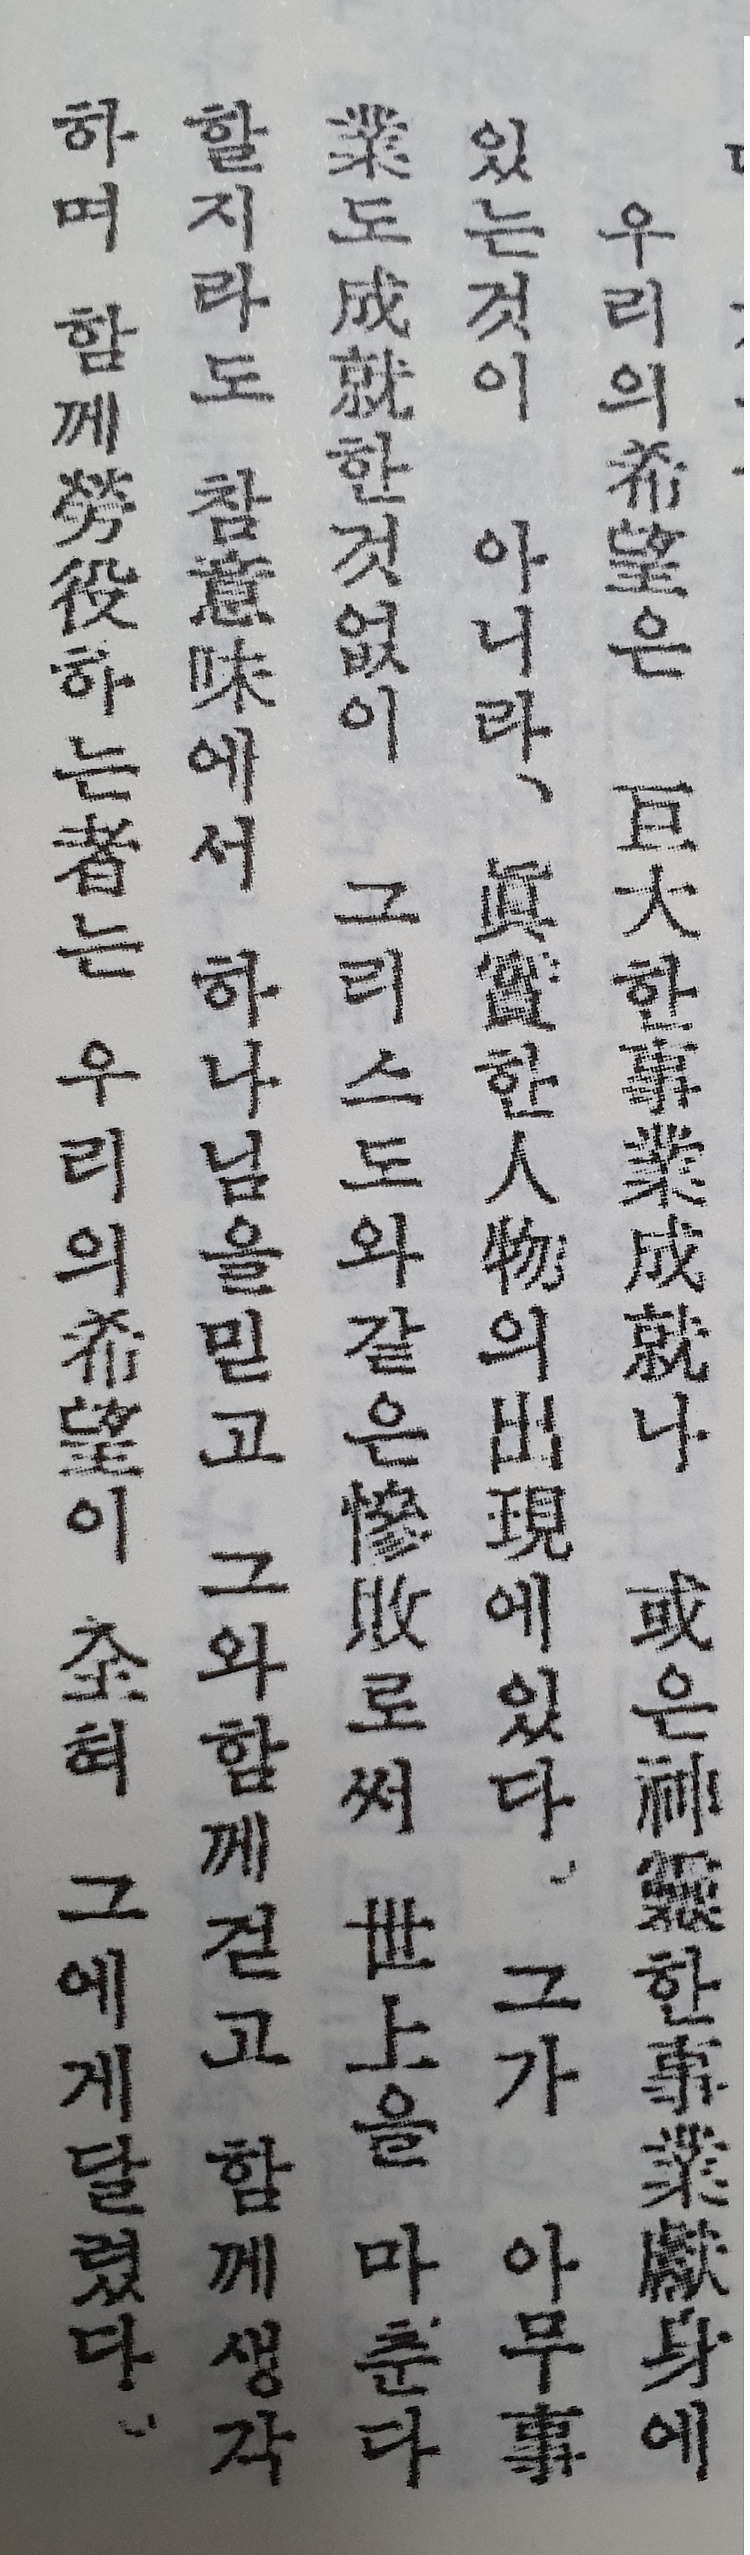 우리의希望은 巨大한事業成就나 或은神靈한事業獻身에
있는것이 아니라、眞實한人物의出現에있다. 그가 아무事
業도成就한것없이 그리스도와같은慘敗로써 世上을 마춘다
할지라도 참意味에서 하나님을믿고 그와함께걷고 함께생각
하며 함께勞役하는者는 우리의希望이 全혀 그에게달렸다.